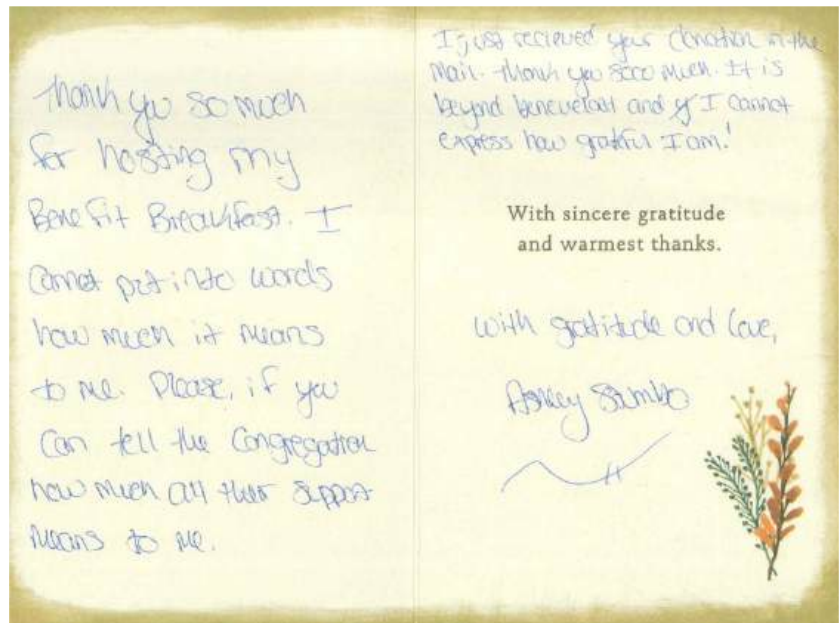 Thank you so much
for hosting my
Benefit Breakfast. I
cannot put into words
how much it means
to me. Please, if you
can tell the congregation
how much all their support
means to me.
I just recieved your donation in the
mail. Thank you sooo much. It is
beyond benevelant and I cannot
express how grateful I am!
With sincere gratitude
and warmest thanks.
With gratitude and love,
Ashley Stumbo